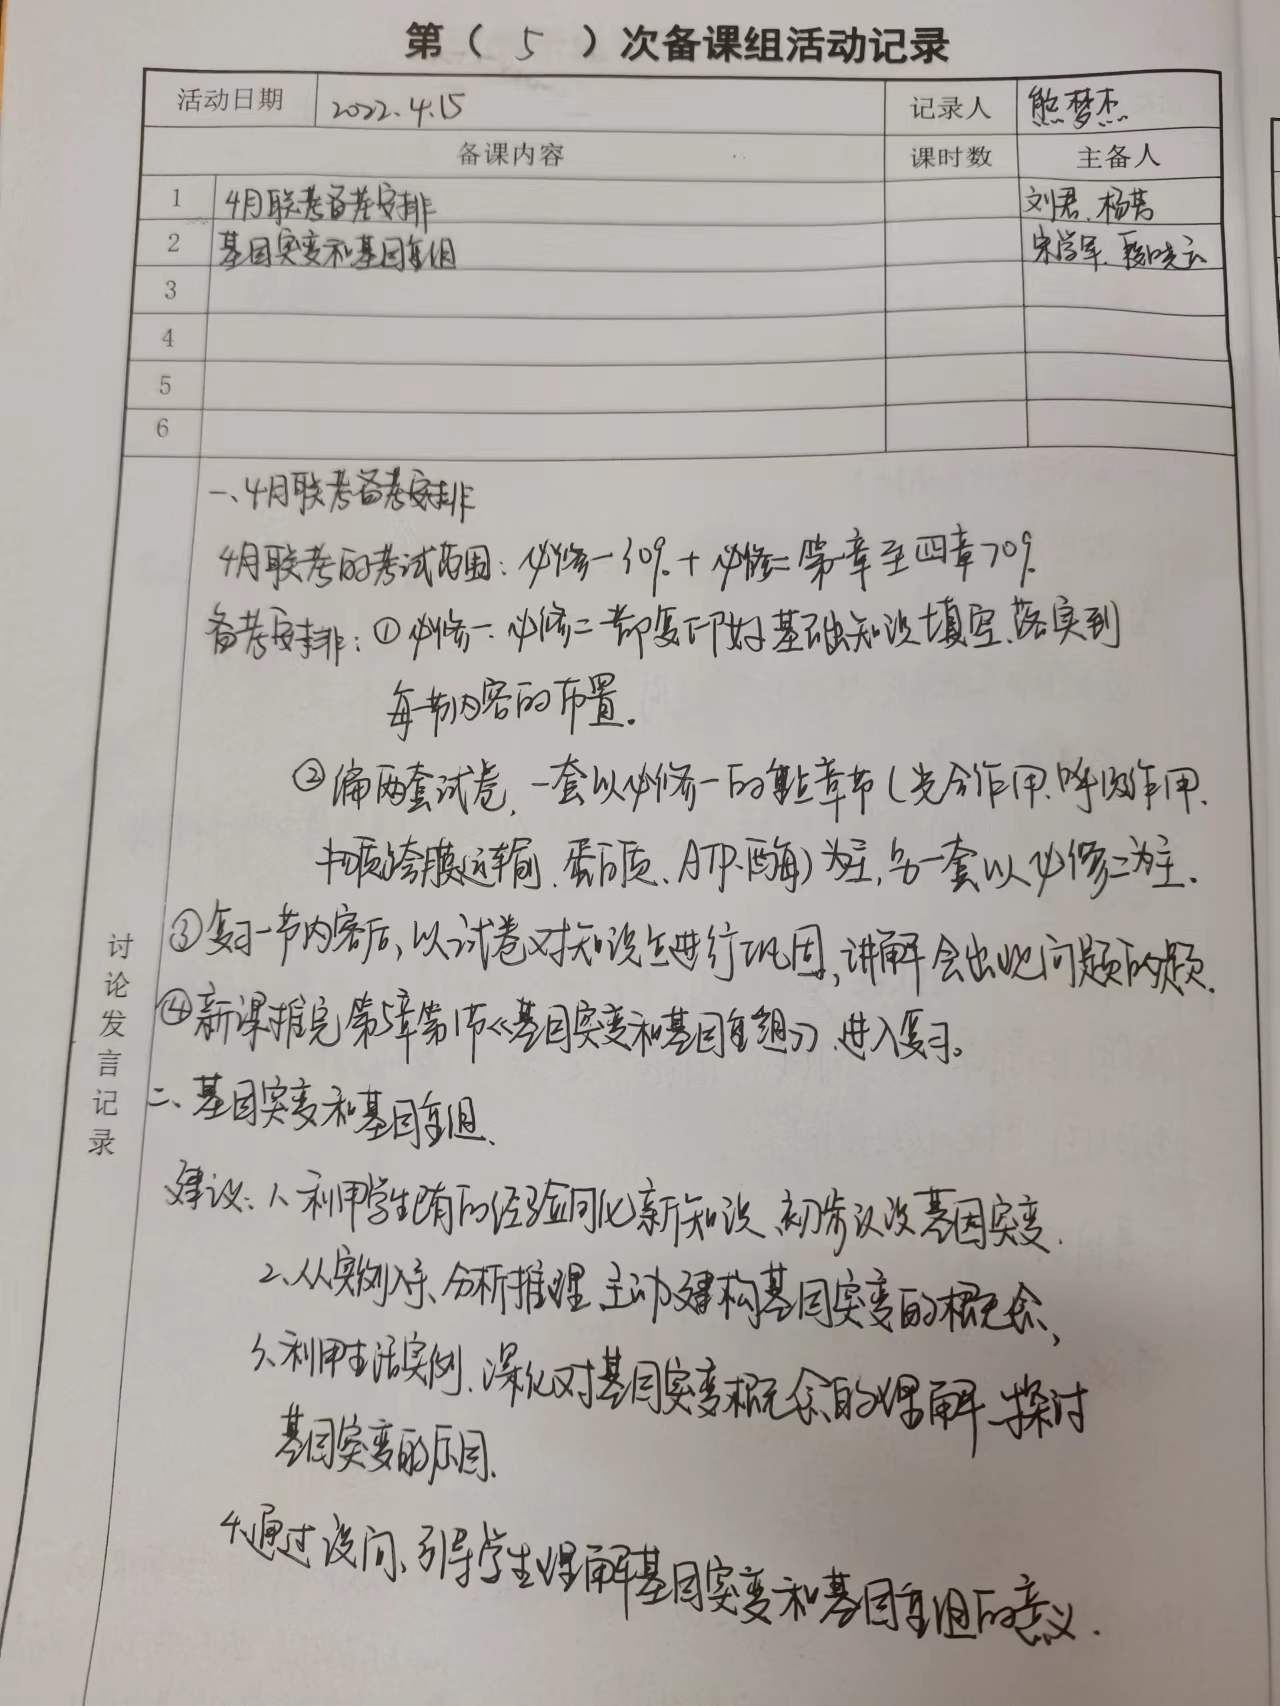 第（ 5 ）次备课组活动记录
活动日期 2022.4.15 记录人 熊梦杰
备课内容 课时数 主备人
1 4月联考备考安排 刘君、杨
2 基因突变和基因重组 宋学军、晓云
3
4
5
6
讨论发言记录
一、4月联考备考安排
4月联考的考试范围：必修一30%+必修二第一章至四章70%
备考安排：①必修一、必修二都复印好基础知识填空、落实到
每一节内容的布置。
②偏两套试卷，一套以必修一的重点章节（光合作用、呼吸作用、
物质跨膜运输、蛋白质、ATP、酶）为主，另一套以必修二为主.
③复习一节内容后，以试卷对知识点进行巩固，讲解会出现问题的题.
④新课推完第5章第1节《基因突变和基因重组》，进入复习。
二、基因突变和基因重组、
建议：1、利用学生已有的经验同化新知识、初步认识基因突变.
2、从实例入手、分析推理、主动建构基因突变的概念，
3、利用生活实例、深化对基因突变概念的理解、探讨
基因突变的原因.
4、通过设问、引导学生理解基因突变和基因重组的意义.